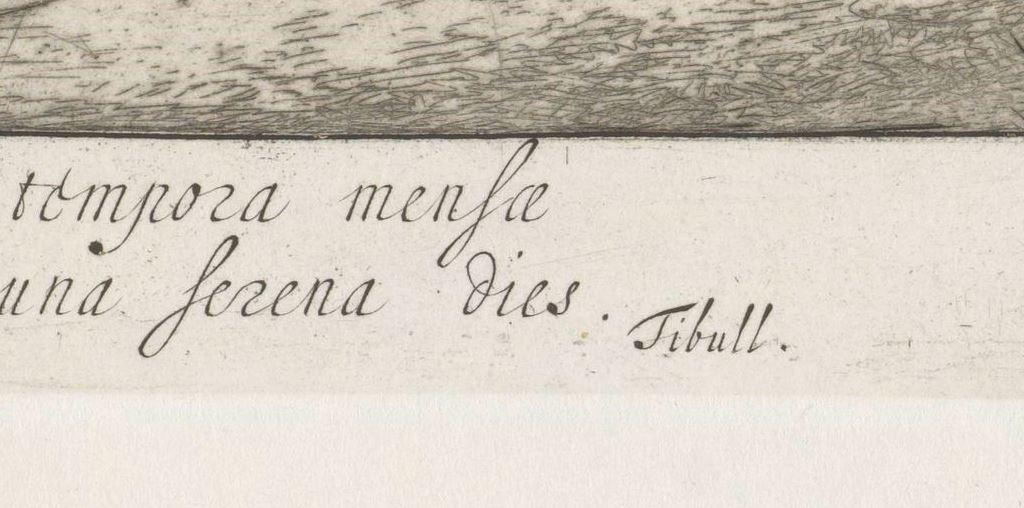 tempora mensæ
una serena dies.
Tibull.